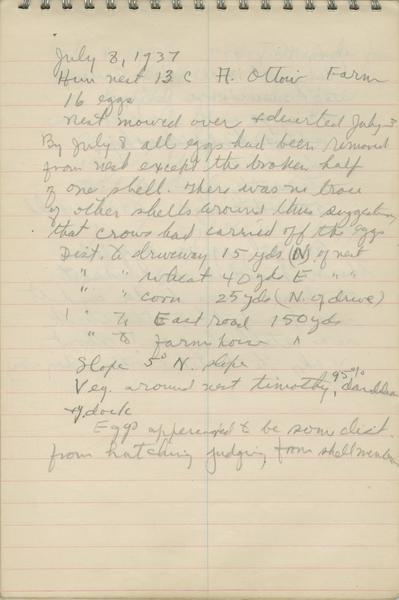 July 8, 1937
Hun nest 13 C A. Ottow Farm
16 eggs
nest mowed over & deserted July 3
By July 8 all eggs had been removed
from nest except the broken half
of one shell. There was no trace
of other shells around thus suggesting
that crows had carried off the eggs
Dist. to driveway 15 yds. (N) of nest
" " wheat 40 yds E " "
" " corn 25 yds (N. of drive)
" to East road 150 yds
" to farm house ^
Slope 5° N. slope
Veg. around nest timothy, 95% dandelion
& dock
Eggs appeared to be some dist.
from hatching judging from shell membrane